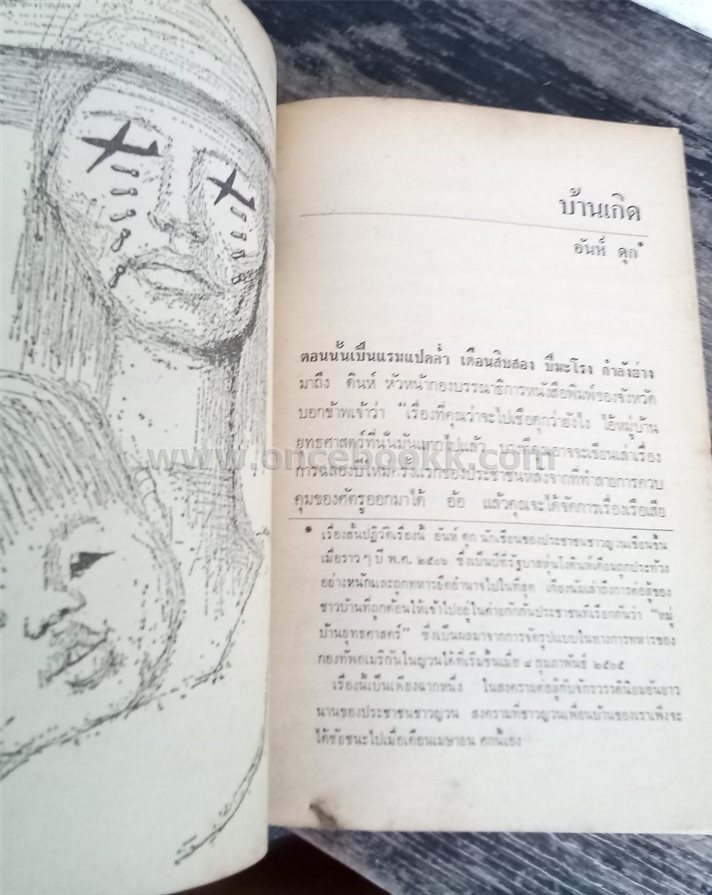 บ้านเกิด
อันห์ ดุก*
ตอนนั้นเป็นแรมแปดค่ำ เดือนสิบสอง ปีมะโรง กำลังย่าง
มาถึง ดินห์ หัวหน้ากองบรรณาธิการหนังสือพิมพ์ของจังหวัด
บอกข้าพเจ้าว่า "เรื่องที่คุณว่าจะไปเชือดกุว่ายังไง ไอ้หมู่บ้าน
ยุทธศาสตร์ที่นั่นมันแตกไปแล้ว บางทีคุณอาจจะเขียนเล่าเรื่อง
www.oncebookk.com
การฉลองปีใหม่ครั้งแรกของประชาชนหลังจากที่ทำลายการควบ
คุมของศัตรูออกมาได้ อ้อ แล้วคุณจะได้จัดการเรื่องเรือเสีย
* เรื่องสั้นปฏิวัติเรื่องนี้ อันห์ ดุก นักเขียนของประชาชาวญวนเขียนขึ้น
เมื่อราว ๆ ปี พ.ศ. ๒๕๐๖ ซึ่งเป็นปีที่รัฐบาลหุ่นโงดินห์เดียมถูกประท้วง
อย่างหนักและถูกทหารยึดอำนาจไปในที่สุด เนื้อเรื่องเล่าถึงการต่อสู้ของ
ชาวบ้านที่ถูกต้อนให้เข้าไปอยู่ในค่ายกักกันประชาชนที่เรียกกันว่า "หมู่
บ้านยุทธศาสตร์" ซึ่งเป็นผลมาจากการจัดรูปแบบในทางการทหารของ
กองทัพอเมริกันในญวนใต้ที่เริ่มขึ้นเมื่อ ๘ กุมภาพันธ์ ๒๕๐๕
เรื่องนี้เป็นเพียงฉากหนึ่ง ในสงครามต่อสู้กับจักรวรรดินิยมอันยาว
นานของประชาชนชาวญวน สงครามที่ชาวญวนเพื่อนบ้านของเราเพิ่งจะ
ได้ชัยชนะไปเมื่อเดือนเมษายน ศกนี้เอง